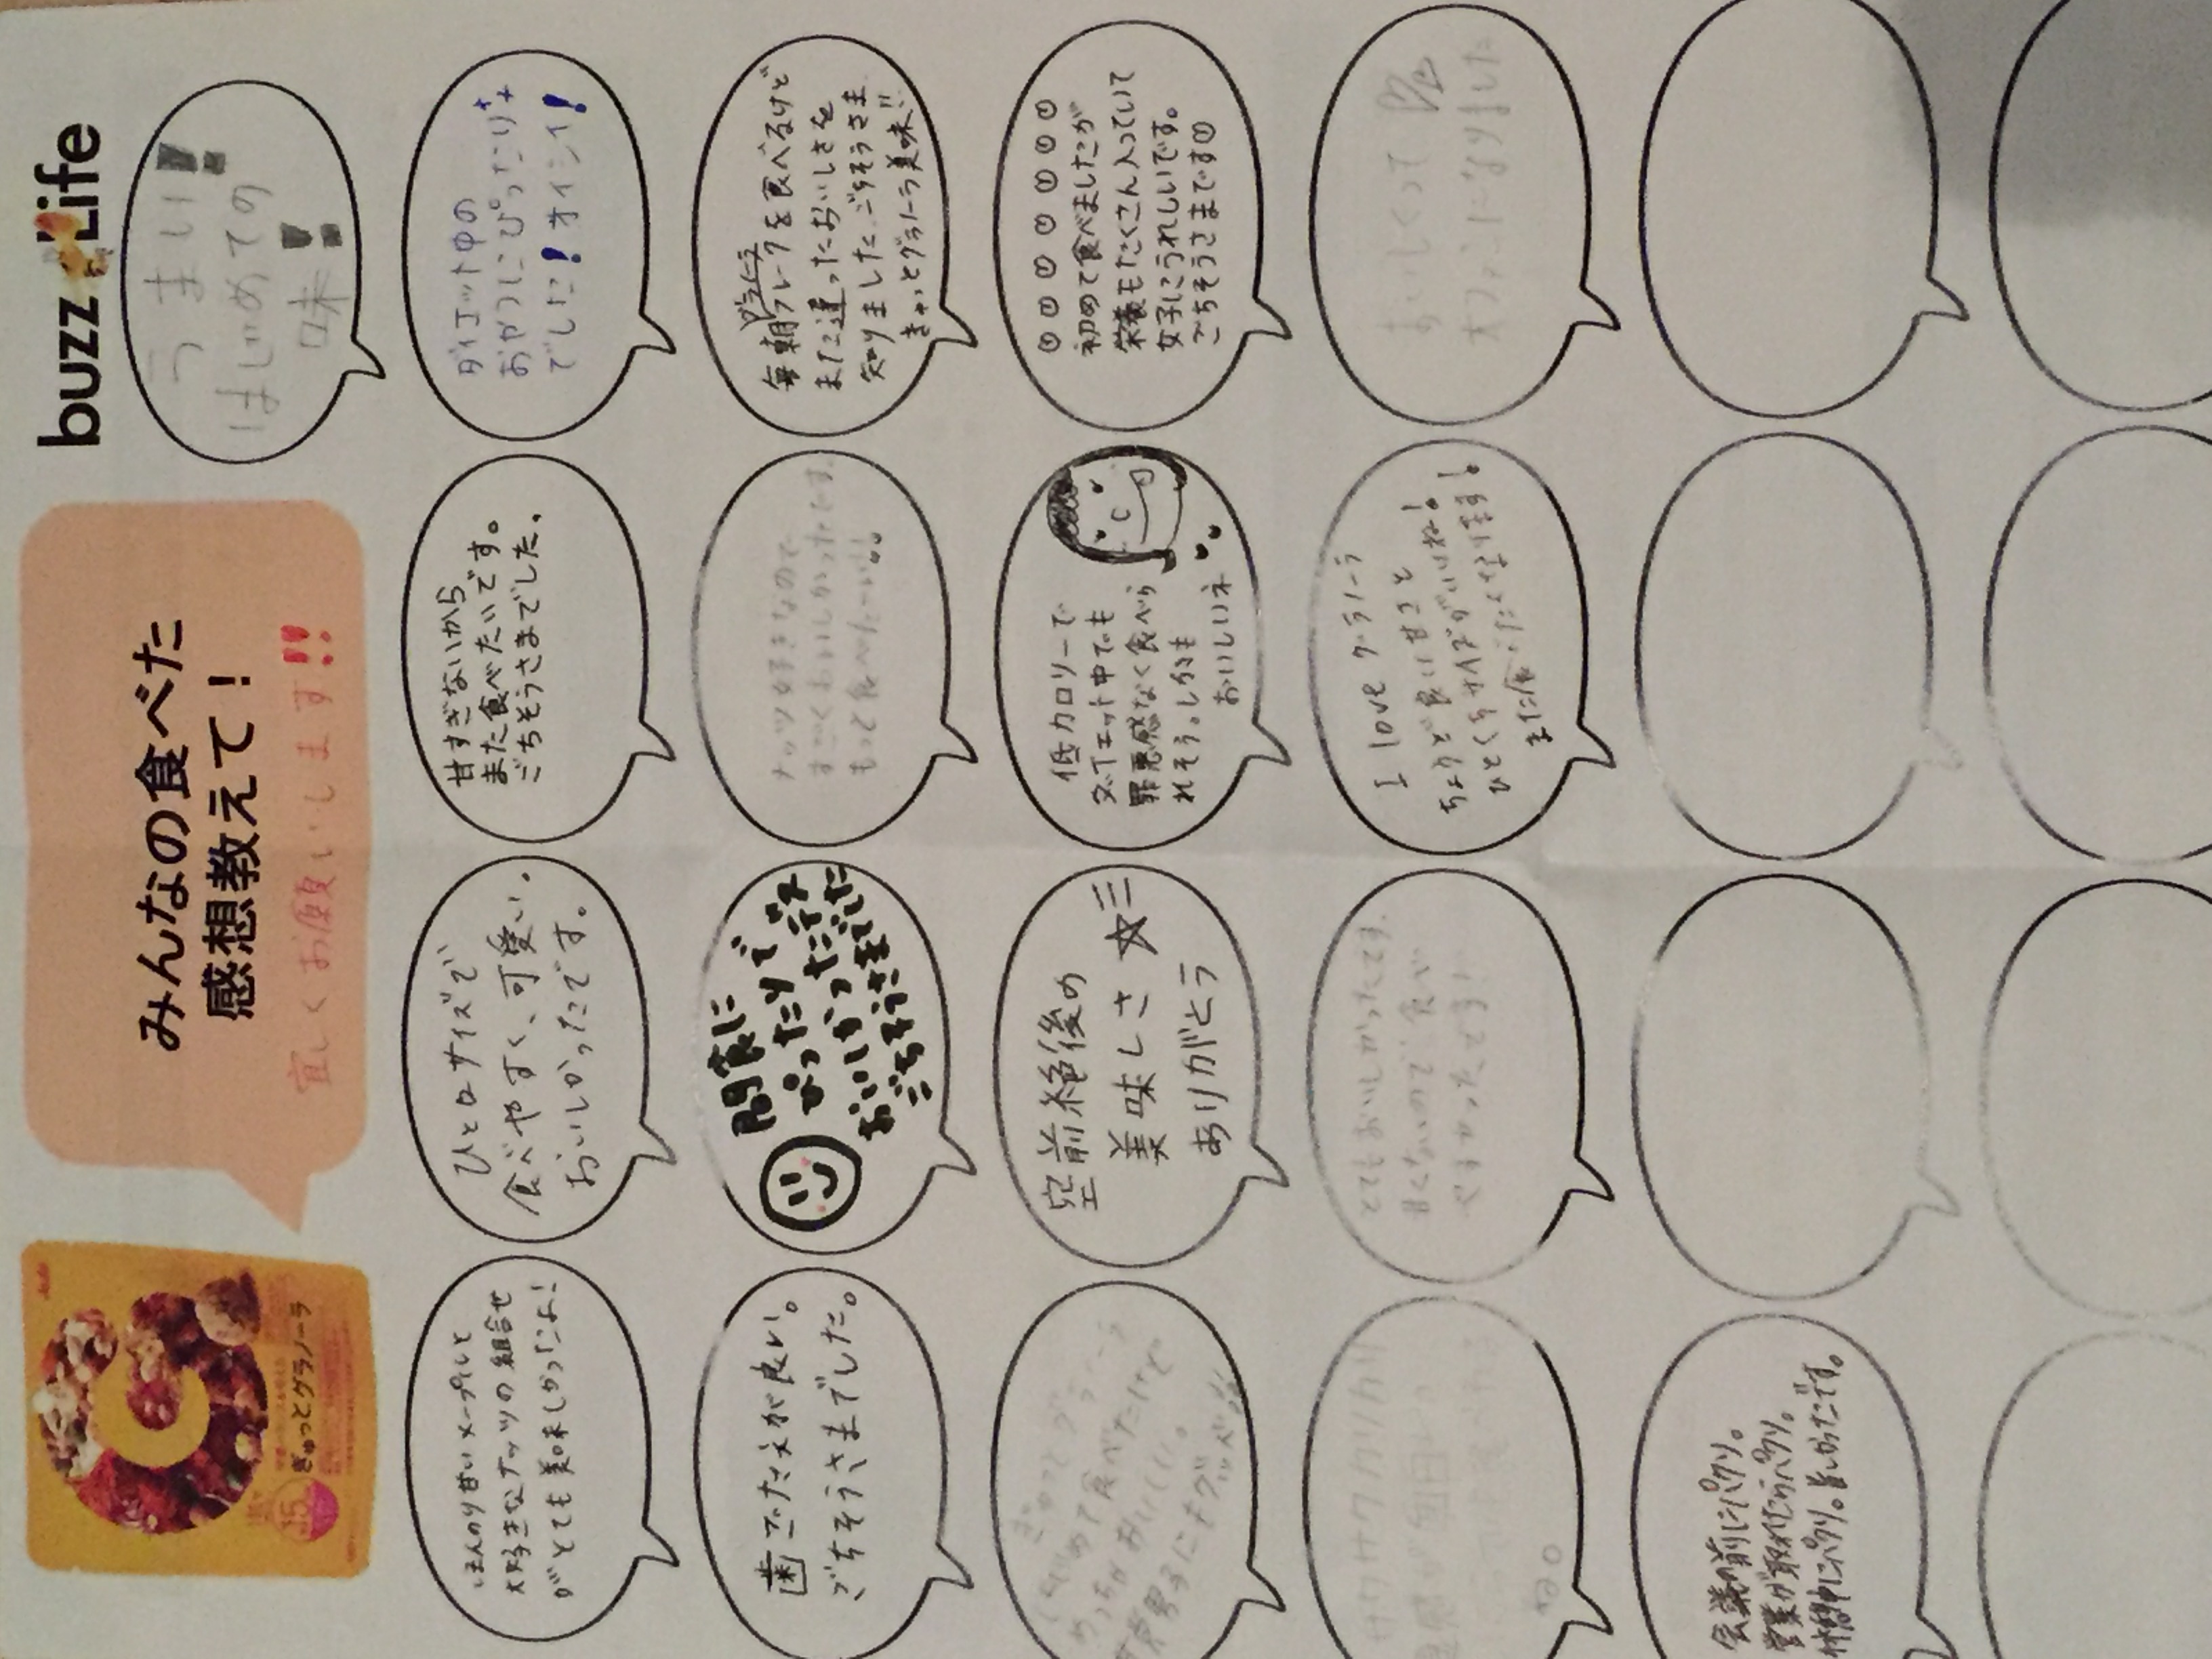 みんなの食べた
感想教えて！
宜しくお願いします!!
buzz Life
ぎゅっとグラノーラ
うまい!
はじめての
味!
ほんのり甘いメープルと
大好きなナッツの組合せ
がとても美味しかったよ!
ひと口サイズで
食べやすく、可愛い、
おいしかったです。
甘すぎないから
また食べたいです。
ごちそうさまでした.
ダイエット中の
おやつにぴったりな
でした!オイシイ!
歯ごたえが良い。
ごちそうさまでした。
間食に
ぴったりで
おいしかったです
ごちそうさまでした
ナッツ好きなので
すごくおいしかったです
もっと食べたーい!!
毎朝フレークを食べるけど
また違ったおいしさを
知りました。ごちそうさま
ぎゅっとグラノーラ美味!!
ぎゅっと
はじめて食べたけど
めっちゃおいしい。
空前絶後の
美味しさ☆
ありがとう
低カロリーで
ダイエット中でも
罪悪感なく食べら
れそう。しかも
おいしいネ
初めて食べましたが
栄養もたくさん入っていて
女子にうれしいです。
ごちそうさまです
サクサクカリカリ
とてもおいしかったです.
甘くないので、食べ
やすかったです!
I love グラノーラ
ちょうど良い甘さと
ひとくちサイズがいいね!
また食べたくなります!。
おいしくって
オファンになりました
会議の前にパクリ。
営業が取れたらパクリ。
休憩中にパクリ。旨しかったです。